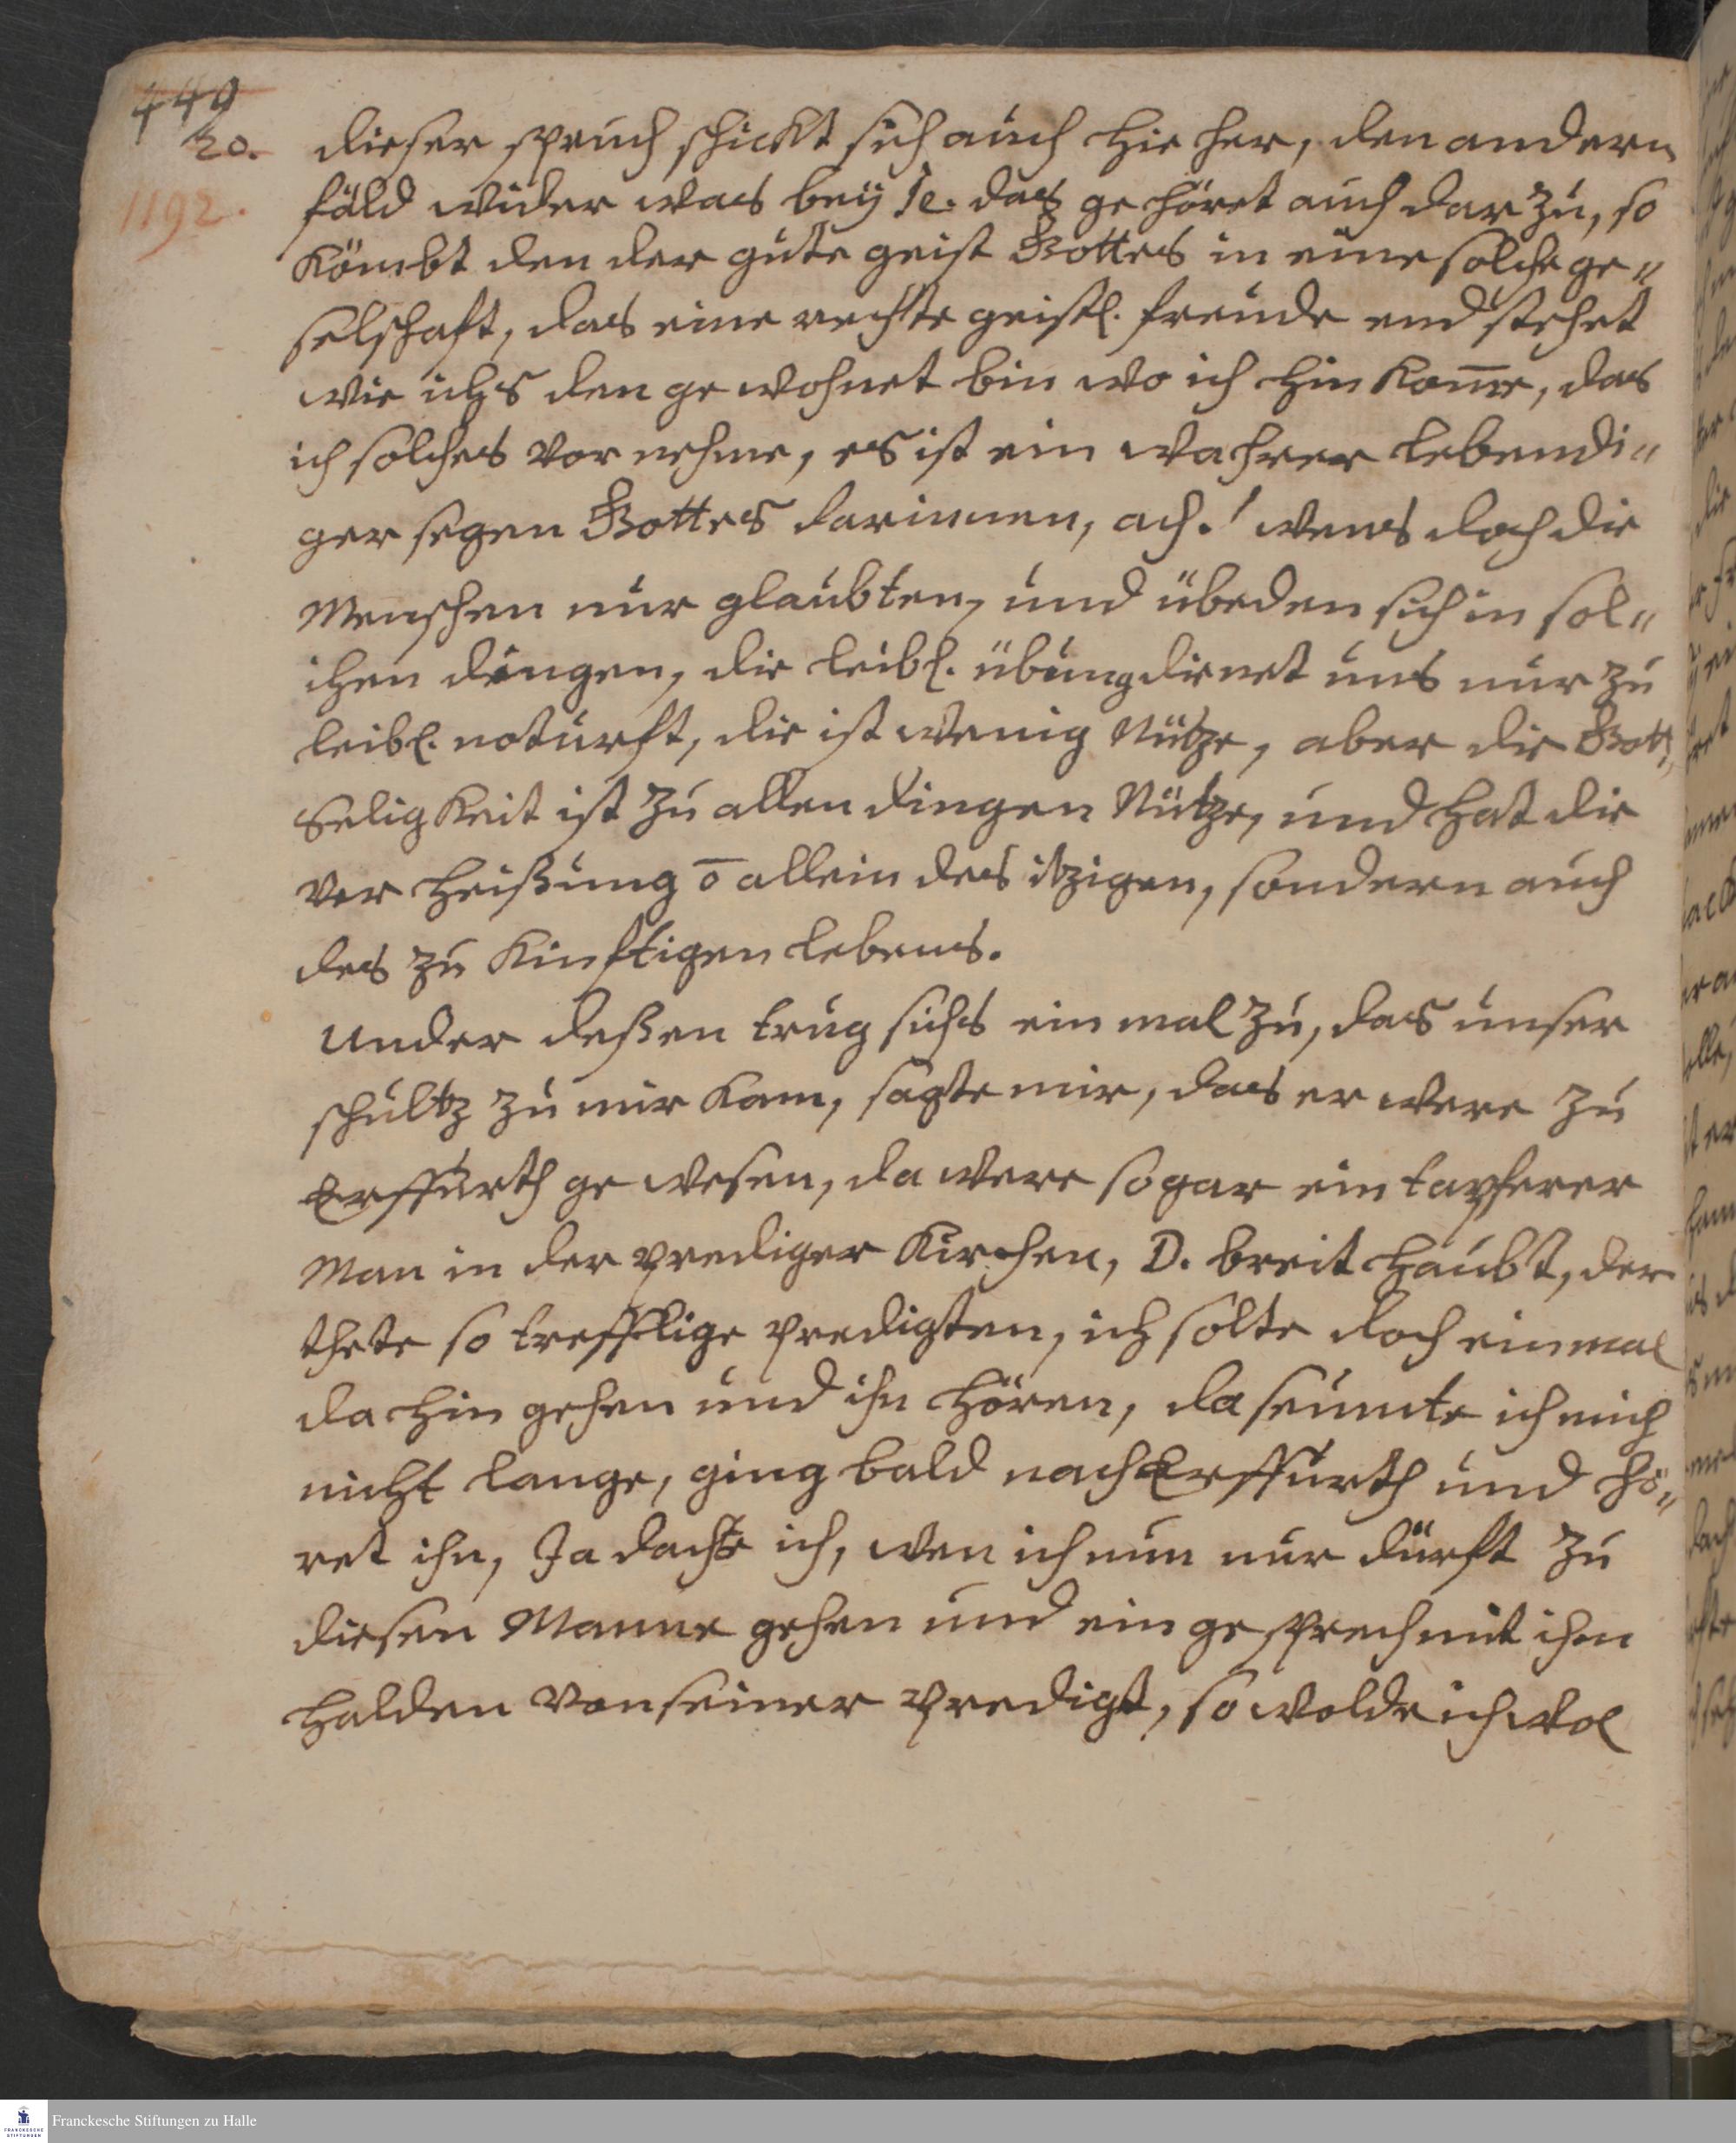 440
20.
1192.
dieser spruch schickt sich auch hie her, den andern
fäld wider was beÿ sc. das gehöret auch dar zu, so
kömbt den der gute geist Gottes in eine solche ge„
selschaft, das eine rechte geistl. freude end stehet
wie ichs den gewohnet bin wo ich hin kom̅e, das
ich solches vor nehme, es ist ein wahrer lebendi„
ger segen Gottes darinnen, ach! wens doch die
Menschen nur glaubten, und übeden sich in sol„
chen dingen, die leibl. übung dienet uns nur zu
leibl. noturft, die ist wenig Nütze, aber die Gott„
Seligkeit ist zu allen dingen Nütze, und hat die
ver heißung o̅ allein des itzigen, sondern auch
des zu Kinftigen lebens.
Under deßen trug sichs ein mal zu, das unser
schultz zu mir kam, sagte mir, das er were zu
Erffurth gewesen, da were so gar ein tapferer
Man in der prediger Kirchen, D. breit haubt, der
thete so treffliche predigten, ich solte doch ein mal
da hin gehen und ihn hören, da seumte ich mich
nicht lange, ging bald nach Erffurth und hö„
ret ihn, Ja dachte ich, wen ich nun nur dürft zu
diesen Manne gehen und ein gesprech mit ihm
halden von seiner predigt, so wolde ich wol
Franckesche Stiftungen zu Halle
FRANCKESCHE
STIFTUNGEN